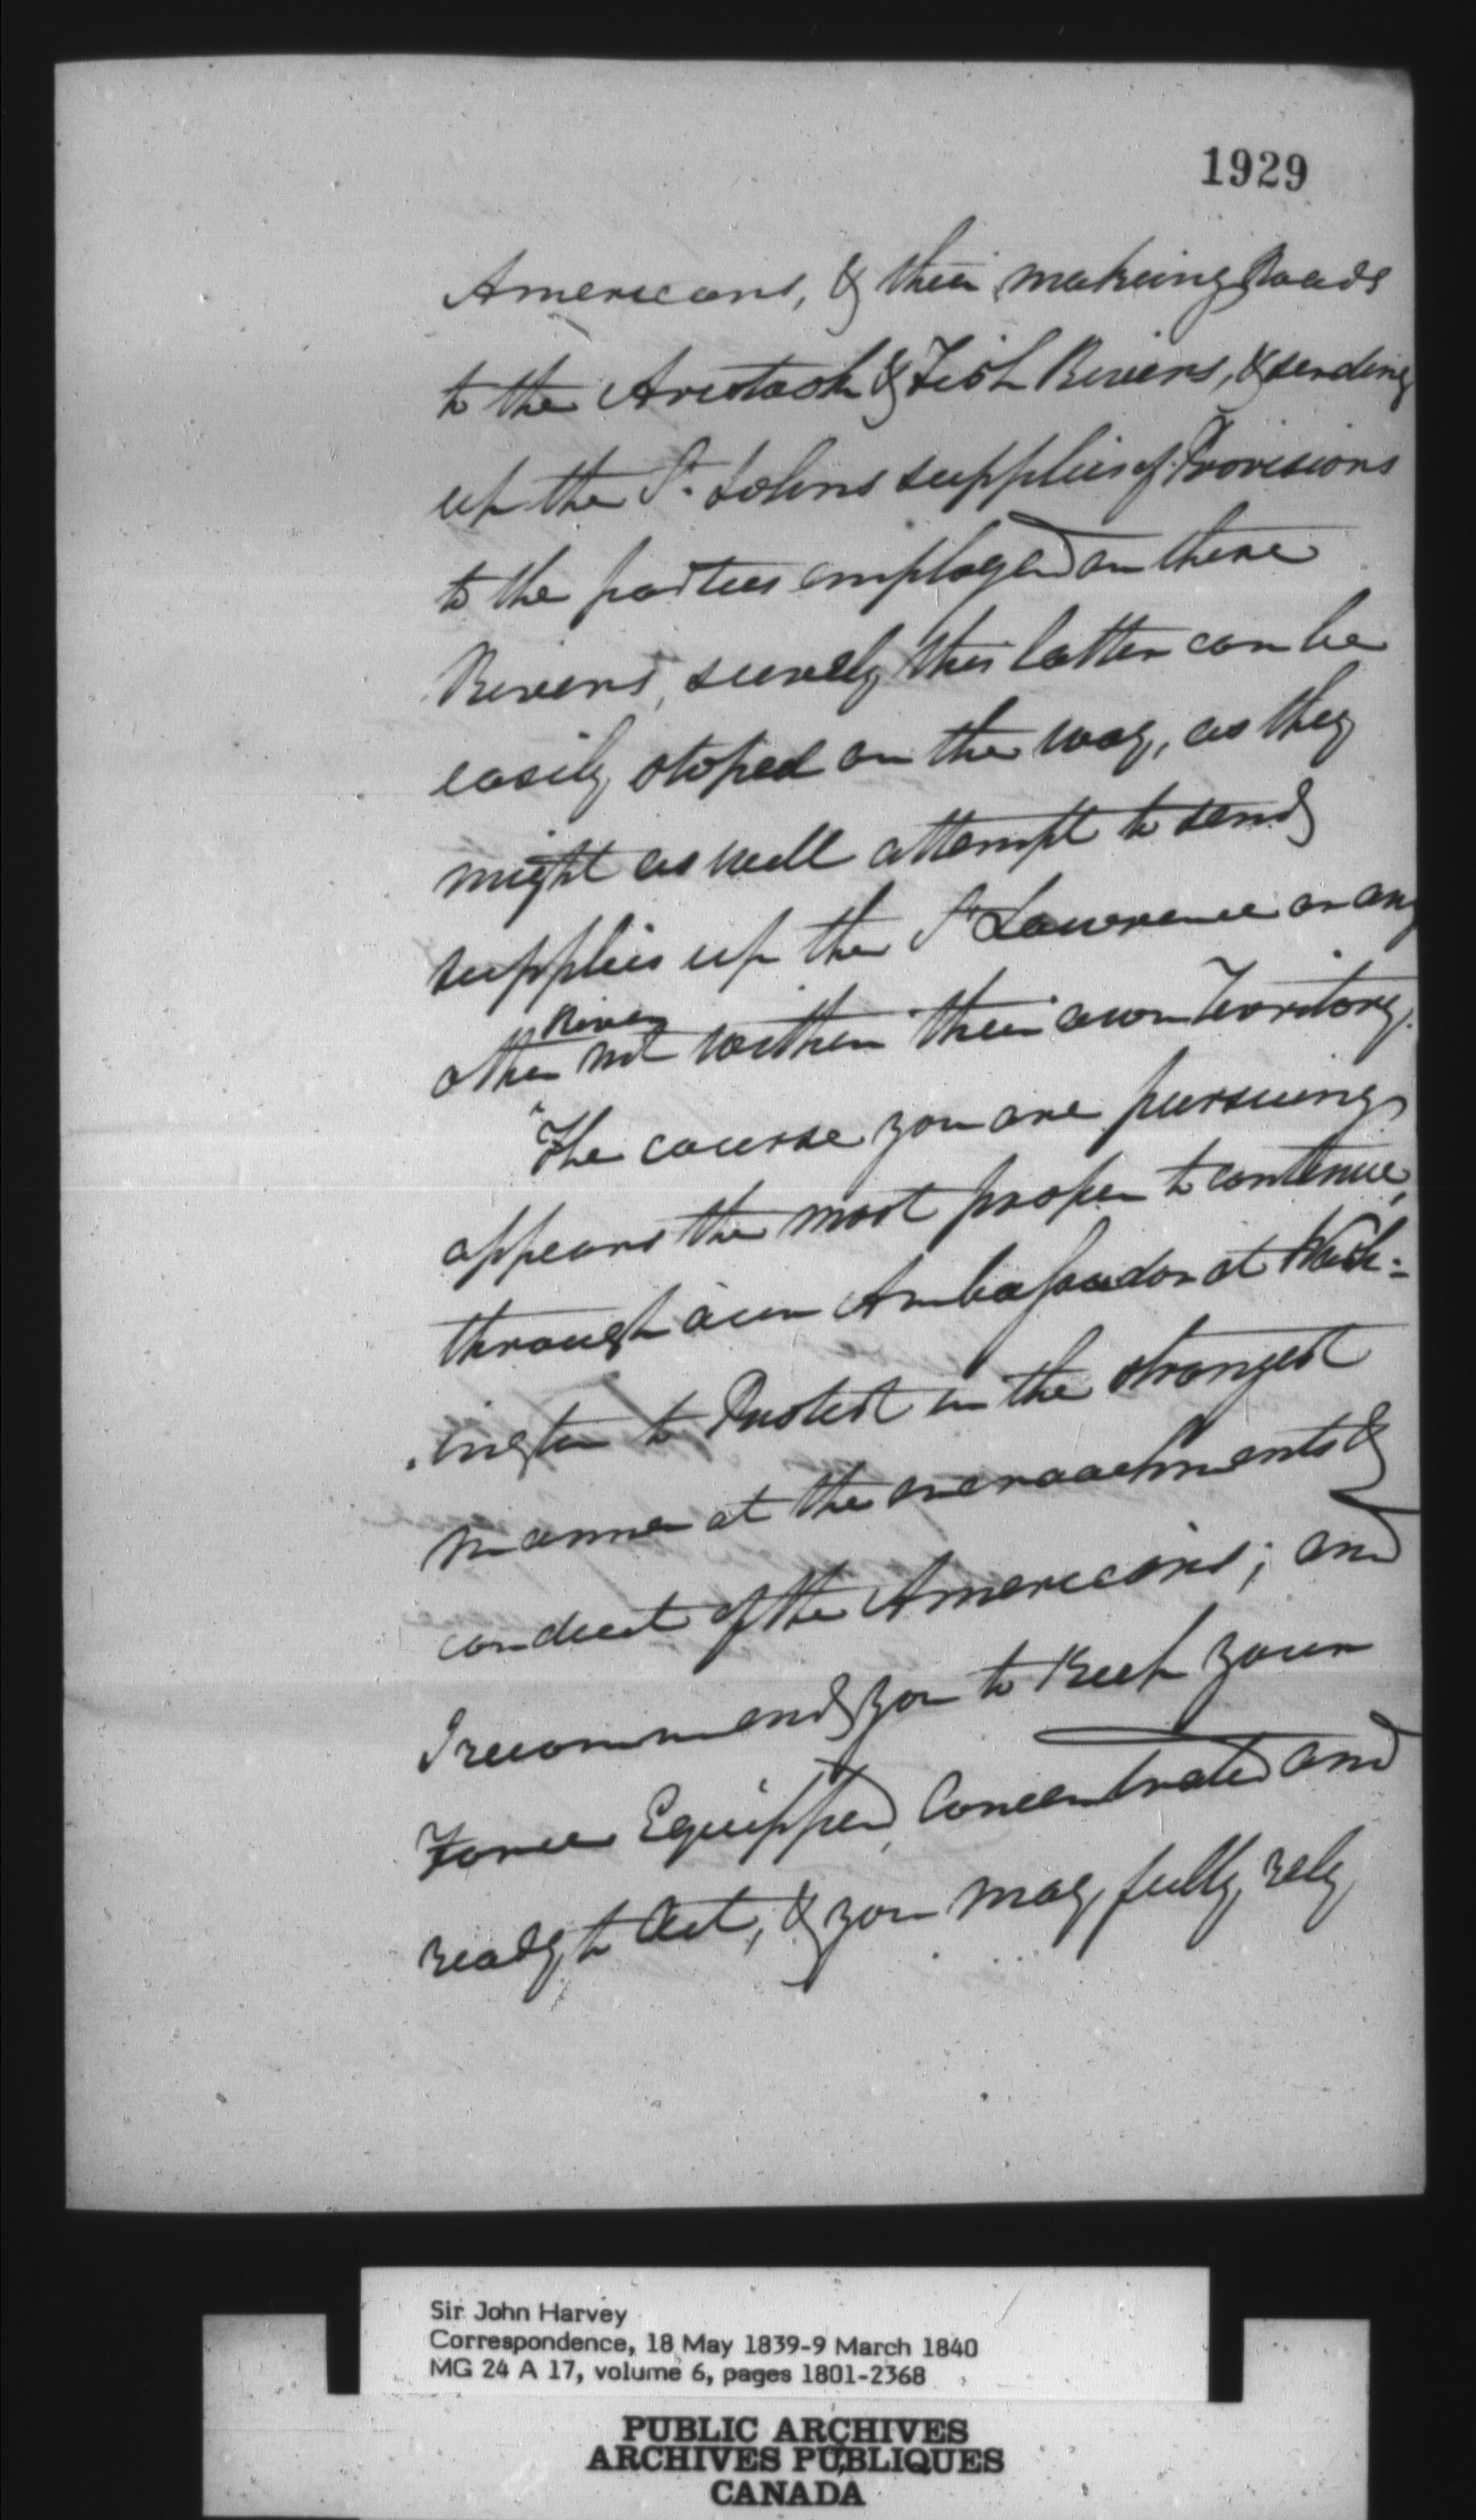 1929
Americans, & their making Roads
to the Aristook & Fish Rivers, & sending
up the St. Johns supplies of Provisions
to the parties employed on there
Rivers, surely this latter can be
easily stoped on the way, as they
might as well attempt to send
supplies up the St Lawrence or any
other River not within their own Territory.
"The course you are pursuing
appears the most proper to continue,
through our Ambassador at Wash-
ington to Protest in the strongest
manner at the encroachments &
conduct of the Americans; and
I recommend you to Keep your
Force Equipped, Concentrated and
ready to Act, & you may fully rely
Sir John Harvey
Correspondence, 18 May 1839-9 March 1840
MG 24 A 17, volume 6, pages 1801-2368
PUBLIC ARCHIVES
ARCHIVES PUBLIQUES
CANADA